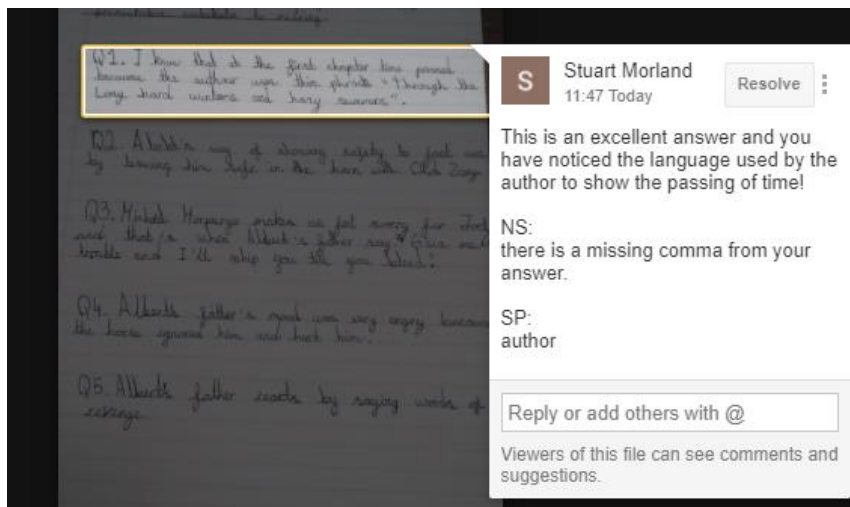 Q1. I know that at the first chapter time passed
because the author uses this phrase "Through the
Long hard winters and hazy summers".
Q2. Albert's way of showing safety to Joey was
by leaving him safe in the barn with Old Zoey.
Q3. Michael Morpurgo makes us feel sorry for Joey
and that is when Albert's father say "Give me
trouble and I'll whip you till you bleed".
Q4. Albert's father's mood was very angry because
the horse ignored him and hurt him.
Q5. Albert's father reacts by saying words of
revenge
S
Stuart Morland
11:47 Today
Resolve
This is an excellent answer and you
have noticed the language used by the
author to show the passing of time!
NS:
there is a missing comma from your
answer.
SP:
author
Reply or add others with @
Viewers of this file can see comments and
suggestions.